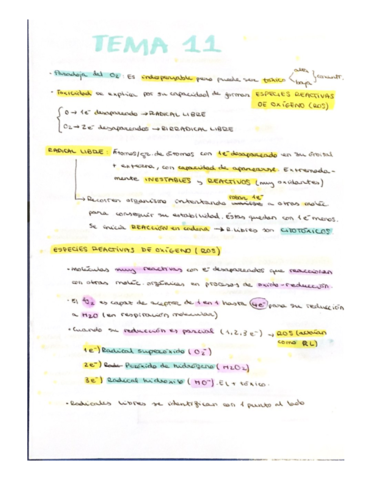 TEMA 11
· Paradoja del O₂: Es indispensable pero puede ser tóxico
· Toxicidad se explica por su capacidad de formar ESPECIES REACTIVAS
DE OXÍGENO (ROS)
O → 1e⁻ desapareado → RADICAL LIBRE
O₂ → 2e⁻ desapareados → BIRRADICAL LIBRE
RADICAL LIBRE: Átomos/gr. de átomos con 1e⁻ desapareado en su orbital
+ externo, con capacidad de aparearse. Extremada-
mente INESTABLES y REACTIVOS (muy oxidantes)
→ Recorren organismo intentando robar 1e⁻ a otras moléc
para conseguir su estabilidad. Éstas quedan con 1e⁻ menos.
Se inicia REACCIÓN en cadena → R. libres son CITOTÓXICOS
ESPECIES REACTIVAS DE OXÍGENO (ROS)
· moléculas muy reactivas con e⁻ desapareados que reaccionan
con otras moléc. orgánicas en procesos de oxido-reducción.
· El O₂ es capaz de aceptar de 1 en 1 hasta 4e⁻ para su reducción
a H₂O (en respiración
· Cuando su reducción es parcial (1, 2, 3 e⁻) → ROS (actúan
como RL)
1e⁻) Radical superóxido (O₂⁻)
2e⁻) Peróxido de hidrógeno (H₂O₂)
3e⁻) Radical hidroxilo (HO⁻). El + tóxico.
· Radicales libres se identifican con 1 punto al lado